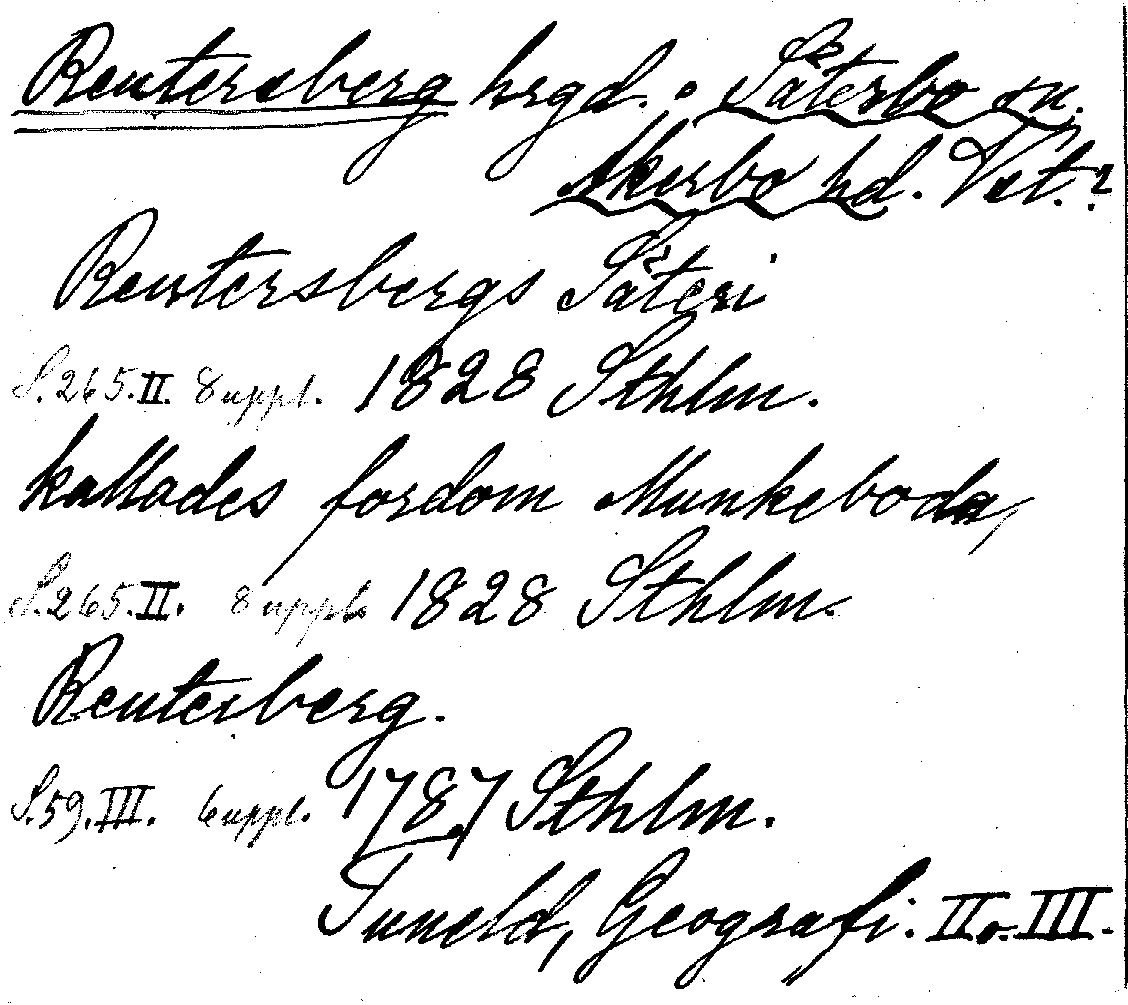 Reutersberg hrgd. i Säterbo sn.
Åkerbo hd. Vst.?
Reutersbergs Säteri
S.265.II. 8 uppl. 1828 Sthlm.
kallades fordom Munkeboda,
S.265.II. 8 uppl. 1828 Sthlm.
Reuterberg.
S.59.III. 6 uppl. 1787 Sthlm.
Tuneld, Geografi. II o. III.